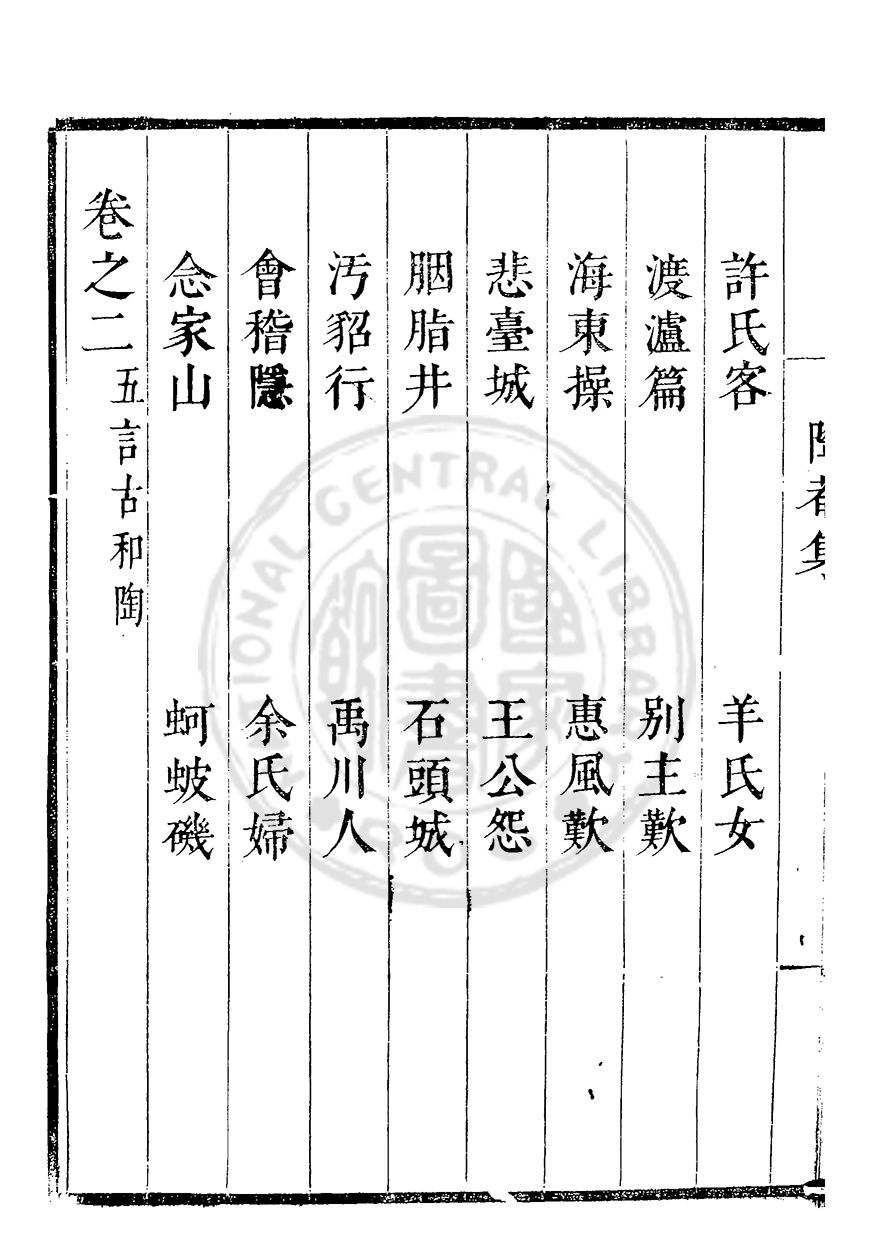 許氏客　羊氏女
渡瀘篇　别主歎
海東操　惠風歎
悲臺城　王公怨
胭脂井　石頭城
汚貂行　禹川人
會稽隱　余氏婦
念家山　蚵蚾磯
卷之二 五言古和陶
NATIONAL CENTRAL LIBRARY
國家圖書館